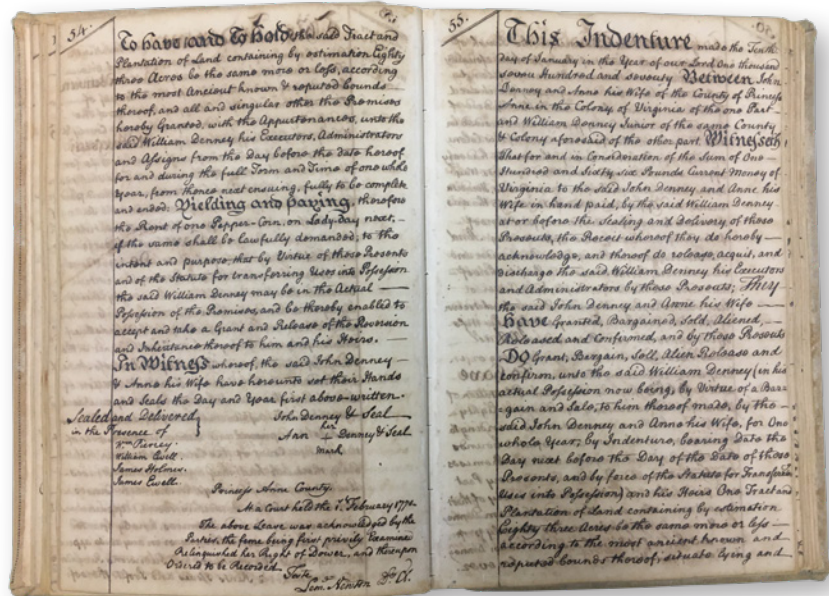 54.
To have and To hold the said Tract and
Plantation of Land containing by estimation Eighty
three Acres be the same more or less, according
to the most Ancient known & reputed bounds
thereof, and all and singular other the Premises
hereby Granted, with the Appurtenances, unto the
said William Denney his Executors, Administrators
and Assigns from the Day before the date hereof
for and during the full Term and Time of one whole
Year, from thence next ensuing, fully to be complete
and ended; Yielding and paying, therefore
the Rent of one Pepper-Corn, on Lady-Day next,
if the same shall be lawfully demanded; to the
intent and purpose, that by Virtue of these Presents
and of the Statute for transferring Uses into Possession
the said William Denney may be in the Actual
Possession of the Premises, and be thereby enabled to
accept and take a Grant and Release of the Reversion
and Inheritance thereof to him and his Heirs.
In Witness whereof, the said John Denney
& Anne his Wife have hereunto set their Hands
and Seals the Day and Year first above-written.
Sealed and Delivered } John Denney & Seal
in the Presence of Ann her + mark Denney & Seal
Wm. Pursey.
William Ewell.
James Holmes.
James Ewell.
Princess Anne County.
At a Court held the 1st February 177
The above Lease was acknowledged by the
Parties, the feme being first privily Examined
Relinquished her Right of Dower, and thereupon
Ordered to be Recorded
Teste
Newton Cl.
55.
This Indenture made the Tenth
day of January in the Year of our Lord One thousand
seven Hundred and seventy Between John
Denney and Anne his Wife of the County of Princess
Anne in the Colony of Virginia of the one Part
and William Denney Junior of the same County
& Colony aforesaid of the other part Witnesseth
That for and in Consideration of the Sum of One
Hundred and Sixty six Pounds Current Money of
Virginia to the said John Denney and Anne his
Wife in hand paid, by the said William Denney
at or before the Sealing and Delivery of these
Presents, the Receit whereof they do hereby
acknowledge, and thereof do release, acquit, and
discharge the said William Denney his Executors
and Administrators by these Presents; They
the said John Denney and Anne his Wife
Have Granted, Bargained, Sold, Aliened,
Released and Confirmed, and by these Presents
Do Grant, Bargain, Sell, Alien Release and
Confirm, unto the said William Denney (in his
actual Possession now being, by Virtue of a Bar-
-gain and Sale, to him thereof made, by the
said John Denney and Anne his Wife, for One
whole Year; by Indenture, bearing Date the
Day next before the Day of the Date of these
Presents, and by force of the Statute for Transferring
Uses into Possession) and his Heirs One Tract and
Plantation of Land containing by estimation
Eighty three Acres be the same more or less
according to the most ancient known and
reputed bounds thereof; situate lying and